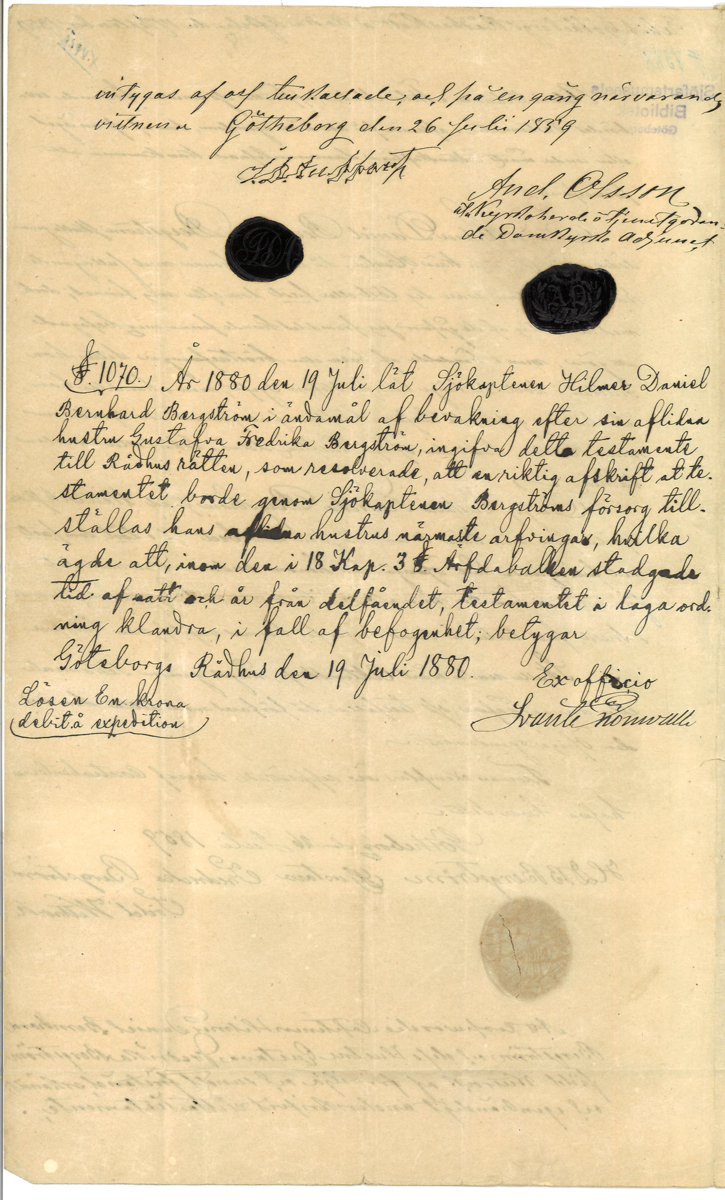 intygas af oss tillkallade, och på en gång närvarande
vittnen. Götheborg den 26 Julii 1859
And. Olsson
v. Kyrkoherde o tjenstgöran-
de Domkyrko Adjunct
§. 1070. År 1880 den 19 Juli lät Sjökaptenen Hilmer Daniel
Bernhard Bergström i ändamål af bevakning efter sin aflidna
hustru Gustafva Fredrika Bergström, ingifva detta testamente
till Rådhusrätten, som resolverade, att en riktig afskrift at te-
stamentet borde genom Sjökaptenen Bergströms försorg till-
ställas hans aflidna hustrus närmaste arfvingar, hvilka
ägde att, inom den i 18 Kap. 3 §. Ärfdabalken stadgade
tid af natt och år från delfåendet, testamentet i laga ord-
ning klandra, i fall af befogenhet; betygar
Göteborgs Rådhus den 19 Juli 1880.
Ex officio
Lösen En krona
debit.å expedition